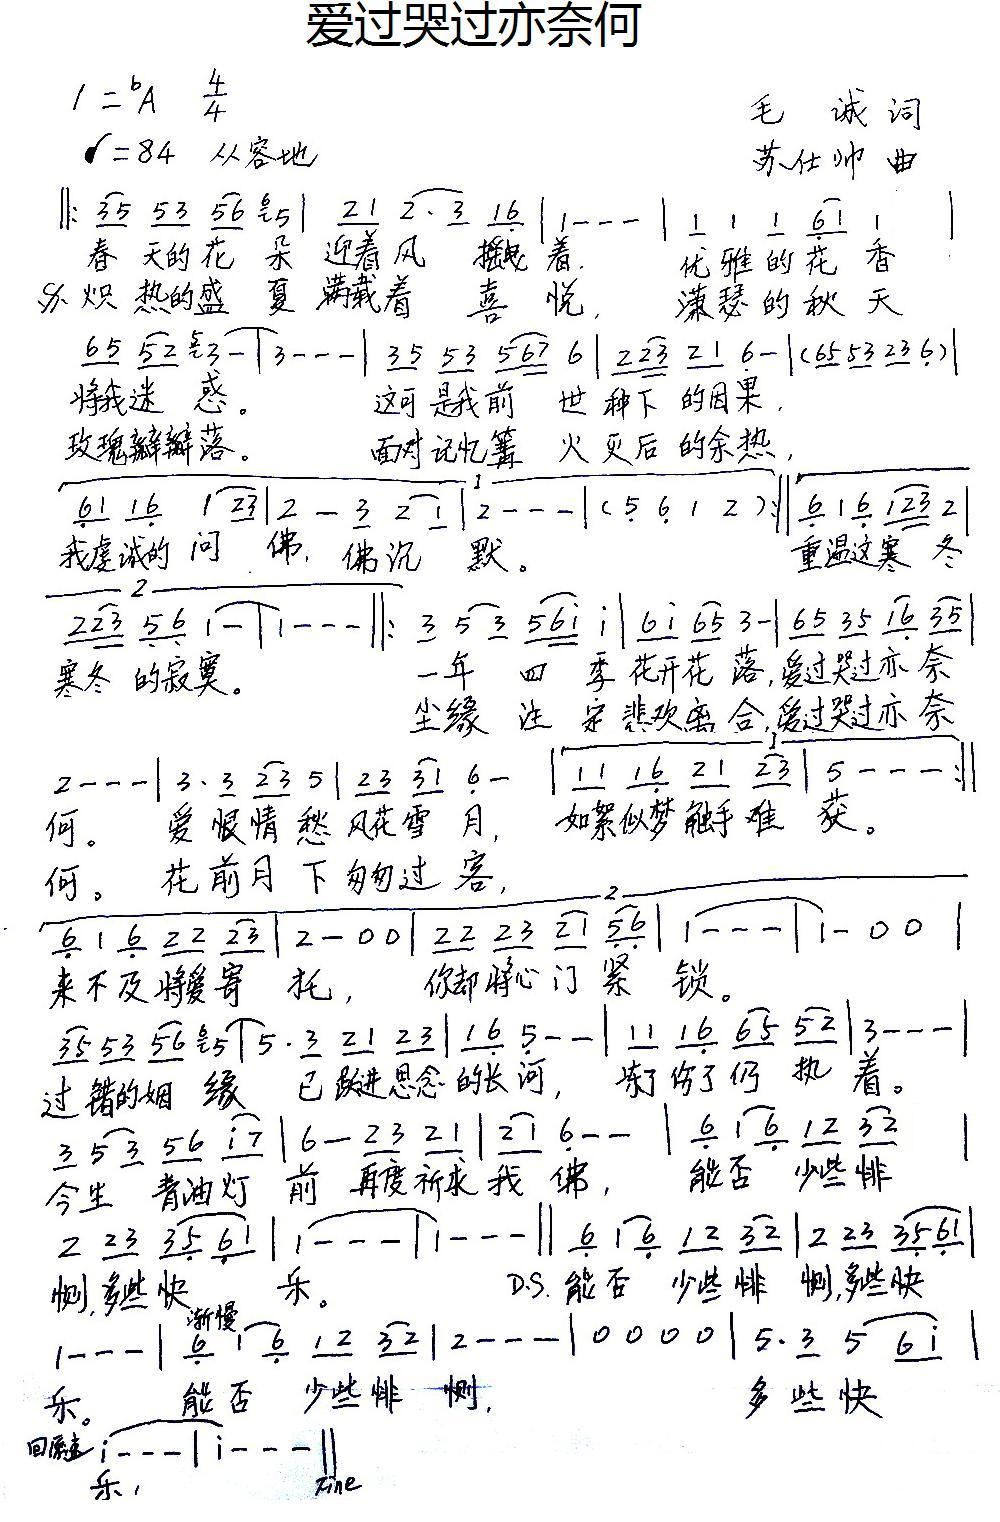 爱过哭过亦奈何
1=ᵇA 4/4
毛 诚 词
♩=84 从容地
苏仕帅 曲
‖: 35 53 56 65 | 21 2·3 16 | 1--- | 1 1 1 61 1 |
春 天的花 朵 迎着风 摇曳着. 优雅的花香
炽热的盛 夏 满载着 喜 悦, 潇瑟的秋天
65 52 53- | 3--- | 35 53 567 6 | 223 21 6- | (65 53 23 6) |
将我迷 惑。 这可是我前 世种下的因果,
玫瑰瓣瓣落。 面对记忆篝火灭后的余热,
1
61 16 1 23 | 2 - 3 2 1 | 2--- | (5 6 1 2) :‖ 6 1 6 123 2 |
我虔诚的问 佛, 佛沉 默。 重温这寒 冬
2
223 56 1- | 1--- ‖: 3 5 3 56i i | 6i 65 3- | 65 35 16 35 |
寒冬的寂寞。 一年 四 季花开花落,爱过哭过亦奈
尘缘注定悲欢离合,爱过哭过亦奈
1
2--- | 3·3 23 5 | 23 31 6- | 11 16 21 23 | 5--- :‖
何。 爱恨情愁风花雪月, 如絮似梦触手难 获。
何。 花前月下匆匆过客,
2
6 1 6 22 23 | 2-00 | 22 23 21 56 | 1--- | 1-00 |
来不及将爱寄 托, 你却将心门紧 锁。
35 53 56 65 | 5·3 21 23 | 16 5-- | 11 16 65 52 | 3--- |
过错的姻 缘 已跃进思念的长河, 冻了伤了仍执着。
3 5 3 56 i7 | 6- 23 21 | 21 6-- | 6 1 6 12 32 |
今生 青油灯 前 再度祈求我佛, 能否 少些悱
2 23 35 61 | 1--- | 1--- ‖ 6 1 6 12 32 | 2 23 35 61 |
恻,多些快 乐。 D.S. 能否 少些悱 恻,多些快
渐慢
1--- | 6 1 6 12 32 | 2--- | 0 0 0 0 | 5·3 5 6i |
乐。 能否 少些悱 恻, 多些快
回原速 i--- | i--- ‖
乐, Fine